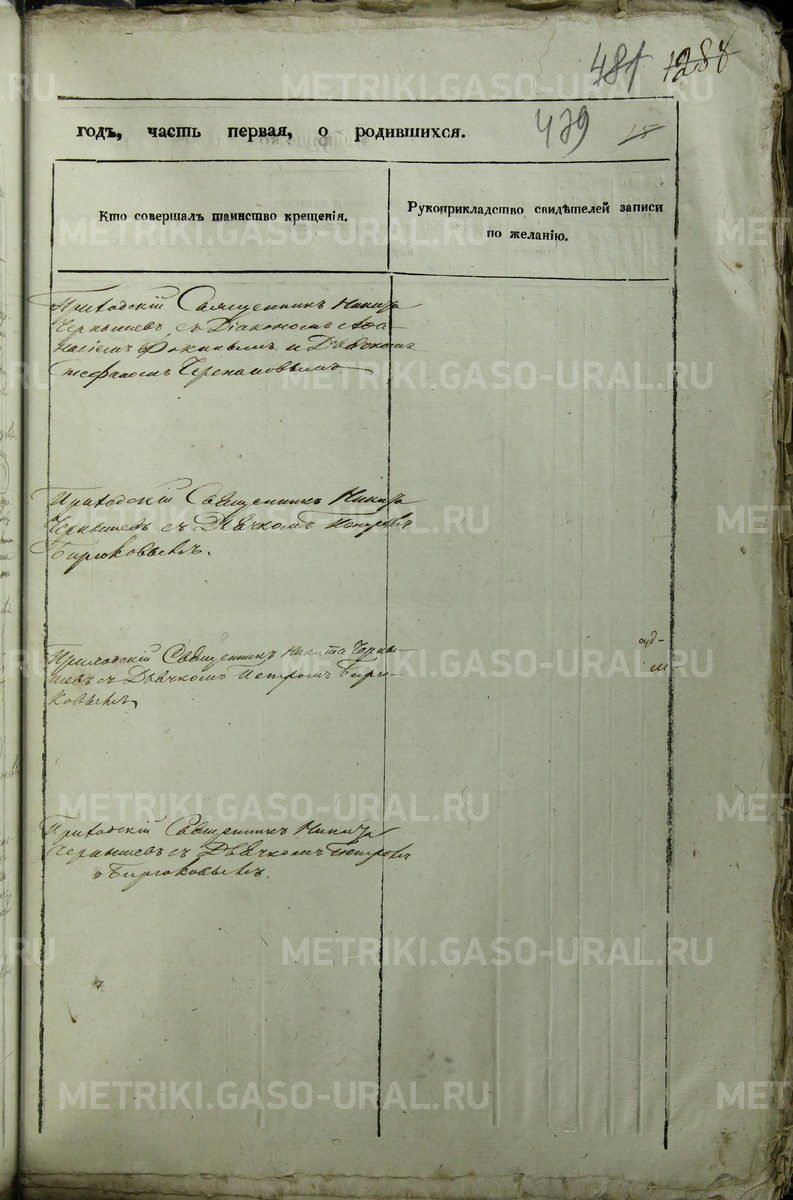 481 1288
годъ, часть первая, о родившихся.
479 15
Кто совершалъ таинство крещенія.
Рукоприкладство свидѣтелей записи
по желанію.
Приходскій Священникъ Никита
Чернышевъ съ Діакономъ Афа-
насіемъ и Дьячкомъ
Стефаномъ Черепановымъ
Приходскій Священникъ Никита
Чернышевъ съ Дьячкомъ Петромъ
Бирюковымъ.
Приходскій Священникъ Никита Черны-
шевъ съ Дьячкомъ Петромъ Бирю-
ковымъ
Приходскій Священникъ Никита
Чернышевъ съ Дьячкомъ Петромъ
Бирюковымъ.
METRIKI.GASO-URAL.RU